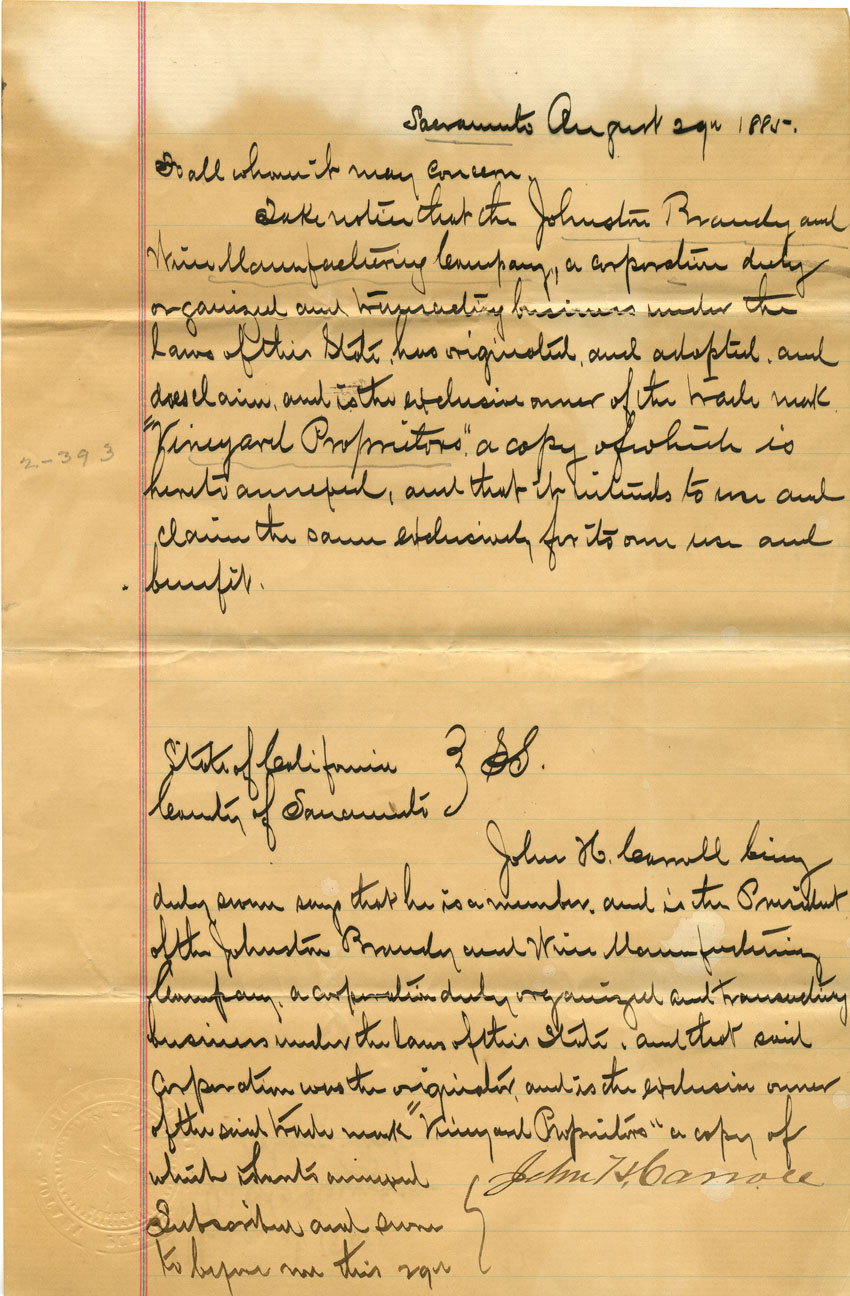 Sacramento August 29th 1885.
To all whom it may concern,
Take notice that the Johnston Brandy and
Wine Manufacturing Company, a corporation duly
organized and transacting business under the
laws of this State, has originated, and adopted, and
does claim, and is the exclusive owner of the trade mark
"Vineyard Proprietors", a copy of which is
2-393
hereto annexed, and that it intends to use and
claim the same exclusively for its own use and
benefit.
State of California } SS.
County of Sacramento
John H. Carroll being
duly sworn says that he is a member, and is the President
of the Johnston Brandy and Wine Manufacturing
Company, a corporation duly organized and transacting
business under the laws of this State, and that said
Corporation was the originator, and is the exclusive owner
of the said trade mark "Vineyard Proprietors" a copy of
which is hereto annexed
John H. Carroll
Subscribed and sworn
to before me this 29th